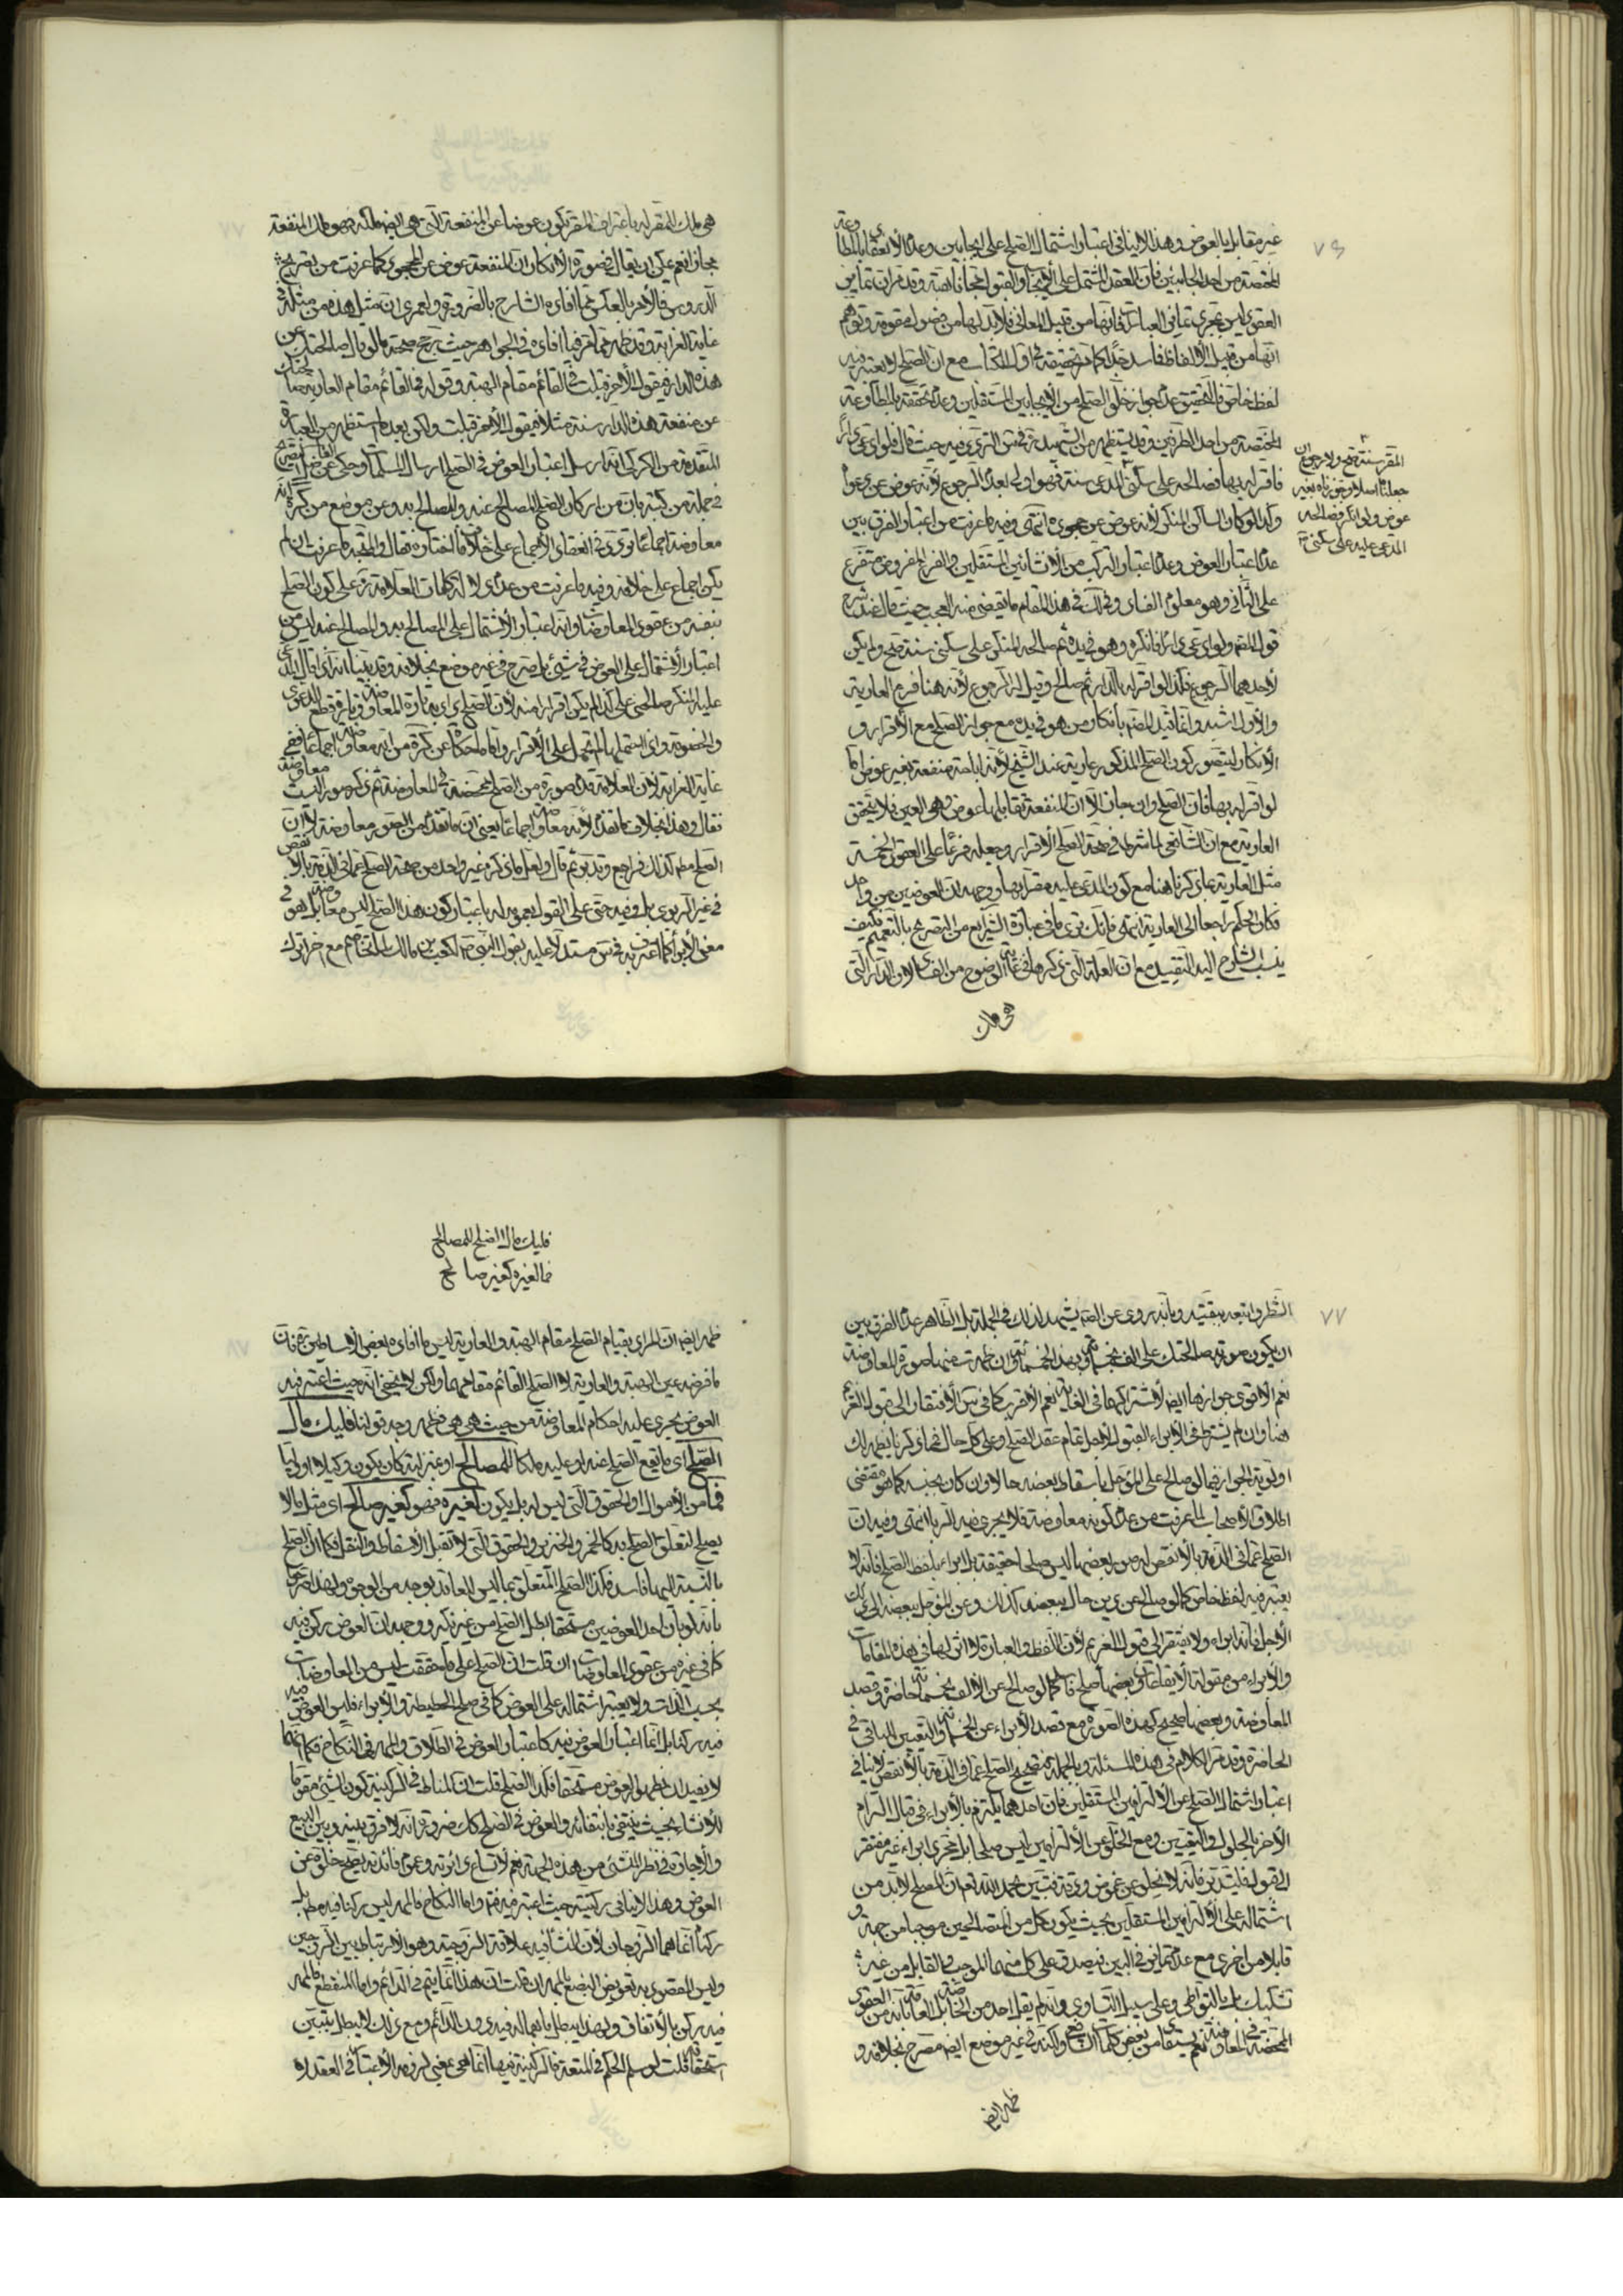 ٧٦
غير مقابل بالعوض وهذا لا ينافي اعتبار اشتمال الصلح على ايجابين وعدم الانعقاد بالمطاوعة
المختصة من احد الجانبين فان العقد المشتمل على الايجاب والقبول
العقود ليس تجري تمايز في العبائر فانها من قبيل المعاني فلا بد لها من
انها من قبيل الالفاظ ففاسد جدا كما تحقيقه في اول الكتاب مع ان الصلح لا يعتبر فيه
لفظ خاص فالتحقيق عدم جواز خلو الصلح من الايجابين المستقلين وعدم تحققه بالمطاوعة
المختصة من احد الطرفين وقد يستظهر من الشهيد ره في س التردد فيه حيث قال فلو ادعى دارا
فاقر له بها فصالحه على سكنى المدعي سنة فهو اولى بعدم الرجوع لانه عوض عن دعواه
وكذا لو كان الساكن المنكر لانه عوض عن جحوده انتهى وفيه ما عرفت من اعتبار الفرق بين
عدم اعتبار العوض وعدم اعتبار التركيب من الانشائين المستقلين والفرع المفروض متفرع
على الثاني وهو معلوم الفساد وفي لك في هذا المقام ما يقضي منه العجب حيث قال عند شرح
قول المصنف ولو ادعى دارا فانكره وهو في يده ثم صالحه المنكر على سكنى سنة صح ولم يكن
لاحدهما الرجوع وكذا لو اقر له بالدار ثم صالح وقيل له الرجوع لانه هنا فرع العارية
والاول اشبه وانما قيد المصنف بانكار من هو في يده مع جواز الصلح مع الاقرار و
الانكار ليتصور كون الصلح المذكور عارية عند الشيخ لانه اباحة منفعة بغير عوض اما
لو اقر له بها فان الصلح وان جاز الا ان المنفعة تقابلها عوض وهي العين فلا يتحقق
العارية مع ان الشافعي لما شرط في صحة الصلح الاقرار وجعله فرعا على العقود الخمسة
مثل العارية بما ذكرناه هنا مع كون المدعى عليه مقرا بها ووجهه ان العوضين من واحد
فكان الحكم راجعا الى العارية انتهى فانك ترى ما في عبارة الشرايع من التصريح بالتعميم فكيف
ينسب الشارح اليه التقييد مع ان العلة التي ذكرها في غاية الوضوح من الفساد لان الدار التي
هي ملك
المقر سنة صح ولا رجوع ان
جعلناه اصلا وتجوزناه بغير
عوض ولو انكر فصالحه
المدعى عليه على سكنى
هي ملك المقر له باعتراف المقر تكون عوضا عن المنفعة التي هي ايضا ملكه فهو ملك المنفعة
مجانا نعم يمكن ان يقال في صورة الانكار ان المنفعة عوض عن الجحود كما عرفت من تصريح
الدروس فالامر بالعكس مما افاده الشارح بالضرورة ولعمري ان مثل هذه من مثله في
غاية الغرابة وقد ظهر مما فيما افاده في الجواهر حيث رجح صحة ما لو قال صالحتك عن
هذه الدار فيقول الاخر قبلت في القائم مقام الهبة وقوله في القائم مقام العارية صالحتك
عن منفعة هذه الدار سنة مثلا فيقول الاخر قبلت ولكن بعد ما استظهر من العبارة
المتقدمة من الكركي انه ارسل اعتبار العوض في الصلح ارسال المسلمات وحكى عن الفاضل التصريح
في جملة من كتبه بان من اركان الصلح المصالح عنه والمصالح به وعن موضع من كرة انه
معاوضة اجماعا
يكن اجماع على خلافه وفيه ما عرفت من عدم دلالة كلمات العلامة ره على كون الصلح
بنفسه من عقود المعاوضات وانه اعتبار الاشتمال على المصالح به والمصالح عنه ليس من
اعتبار الاشتمال على العوض في شيء بل صرح في غير موضع بخلافه وقد بينا انه اذا قال المدعى
عليه المنكر صالحني على كذا لم يكن اقرارا منه لان الصلح يراد به تارة المعاوضة وتارة قطع الدعوى
والخصومة واذا احتملهما لم يحمل على الاقرار واما ما حكاه عن كرة من انه معاوضة اجماعا ففي
غاية الغرابة لان العلامة
فقال وهذا بخلاف ما تقدم لانه معاوضة اجماعا يعني ان ما تقدم من الصور معاوضة لا ان
الصلح مطلقا كذلك فراجع وتدبر ثم قال ولعل ما ذكره غير واحد من صحة الصلح عما في الذمة بالانقص
في غير الربوي بل وفيه حتى على القول بعمومه له باعتبار كون هذا الصلح ليس معاوضة بل هو في
معنى الابراء كما اعترف به في س مستدلا عليه بقول النبي ص لكعب بن مالك لما تخاصم مع اخر اترك
٧٧
الشطر واتبعه ببقيته وبانه روي عن الصادق يشهد لذلك في الجملة بل الظاهر عدم الفرق بين
ان يكون صورته صالحتك على الف بخمسمائة وبهذه الخمسمائة وان ظهرت منهما صورة المعاوضة
نعم الاقوى جوازها ايضا لاشتراكهما في الغاية نعم الاقرب كما في س الافتقار الى قبول الغريم
هنا وان لم يشترط في الابراء القبول لاجل تمام عقد الصلح وعلى كل حال فما ذكرنا يظهر لك
اولوية الجواز فيما لو صالح على المؤجل باسقاط بعضه حالا وان كان بجنسه كما هو مقتضى
اطلاق الاصحاب لما عرفت من عدم كونه معاوضة فلا يجري فيه الربا انتهى وفيه ان
الصلح عما في الذمة بالانقص له صور بعضها ليس صلحا حقيقة بل ابراء بلفظ الصلح فانه لا
يعتبر فيه لفظ خاص كما لو صالح عن دين حال ببعضه كذلك وعن المؤجل ببعضه الى ذلك
الاجل فانه ابراء ولا يفتقر الى قبول الغريم لان اللفظ والعبارة لا اثر لها في هذه المقامات
والابراء من مقولة الايقاعات وبعضها صلح فاسد كما لو صالح عن الالف بخمسمائة حاضرة وقصد
المعاوضة وبعضها صحيح كهذه الصورة مع قصد الابراء عن الخمسمائة والتعيين الباقي في
الحاضرة وقد مر الكلام في هذه المسئلة وبالجملة فتصحيح الصلح عما في الذمة بالانقص لا ينافي
اعتبار اشتمال الصلح عن الالتزامين المستقلين فان احدهما يلتزم بالابراء في قبال التزام
الاخر بالحلول والتعيين ومع الخلو عن الالتزامين ليس صلحا بل يتحرى ابراء غير مفتقر
الى قبول فليتدبر فانه لا يخلو عن غموض ودقة فتبين بحمد الله تعالى ان الصلح لا بد من
اشتماله على الالتزامين المستقلين بحيث يكون كل من المتصالحين موجبا من جهة و
قابلا من اخرى مع عدم تمايز في البين فيصدق على كل منهما الموجب والقابل من غير
تشكيك بل بالتواطي وعلى سبيل التساوي وانه لم يقل احد من الخاصة بل العامة بانه من العقود
المختصة في المعاوضة نعم يستفاد من بعض كلمات الشافعي ولكنه في غير موضع ايضا مصرح بخلافه و
ظهر ايضا
فليك مال الصلح للمصالح
فما لغيره كغير صالح
ظهر ايضا ان المراد بقيام الصلح مقام الهبة والعارية ليس ما افاده بعض الاساطين قده فان
ما فرضه عين الهبة والعارية لا الصلح القائم مقامهما ولكن لا يخفى انه حيث اعتبر فيه
العوض يجري عليه احكام المعاوضة من حيث هي هي فظهر وجه قولنا فليك مال
الصلح اي ما يقع الصلح عنه او عليه ملكا للمصالح او غيره انه كان يكون وكيلا او وليا
فما من الاموال او الحقوق التي ليس له بل يكون لغيره فهو كغير صالح اي مثل ما لا
يصلح لتعلق الصلح به كالخمر والخنزير والحقوق التي لا تقبل الاسقاط والنقل فكما ان الصلح
بالنسبة اليها فاسد فكذا الصلح المتعلق بما ليس للعاقد بوجه من الوجوه ولهذا صرحوا
بانه لو بان احد العوضين مستحقا بطل الصلح من غير نكير ووجهه ان العوض ركن فيه
كما في غيره من عقود المعاوضات ان قلت ان الصلح على ما حققت ليس من المعاوضات
بحسب الذات ولا يعتبر اشتماله على العوض كما في صلح الحطيطة والابراء فليس العوض فيه
فيه ركنا بل انما اعتبار العوض فيه كاعتبار العوض في الطلاق والمهر في النكاح فكما انهما
لا يفسدان بظهور العوض مستحقا فكذا الصلح قلت ان المناط في الركنية كون الشيء مقوما
للانشاء بحيث ينتفي بانتفائه والعوض في الصلح كذلك ضرورة انه لا فرق بينه وبين البيع
والاجارة في نظر المنشئ من هذه الجهة نعم لاتساع دائرته وعموم فائدته يصح خلوه عن
العوض وهذا لا ينافي ركنيته حيث اعتبر فيه فتدبر واما النكاح فالمهر ليس ركنا فيه مطلقا بل
ركناه انما هما الزوجان لان المنشأ فيه علاقة الزوجية وهو الارتباط بين الزوجين
وليس المقصود به تعويض البضع بالمهر ان قلت ان هذا انما يتم في الدائم واما المنقطع فالمهر
فيه ركن بالاتفاق ولهذا يبطل باهماله فيه دون الدائم ومع ذلك لا يبطل بتبين
استحقاقه قلت لو سلم الحكم في المتعة فالركنية فيها انما هي بمعنى لزوم الاعتبار في العقد لا